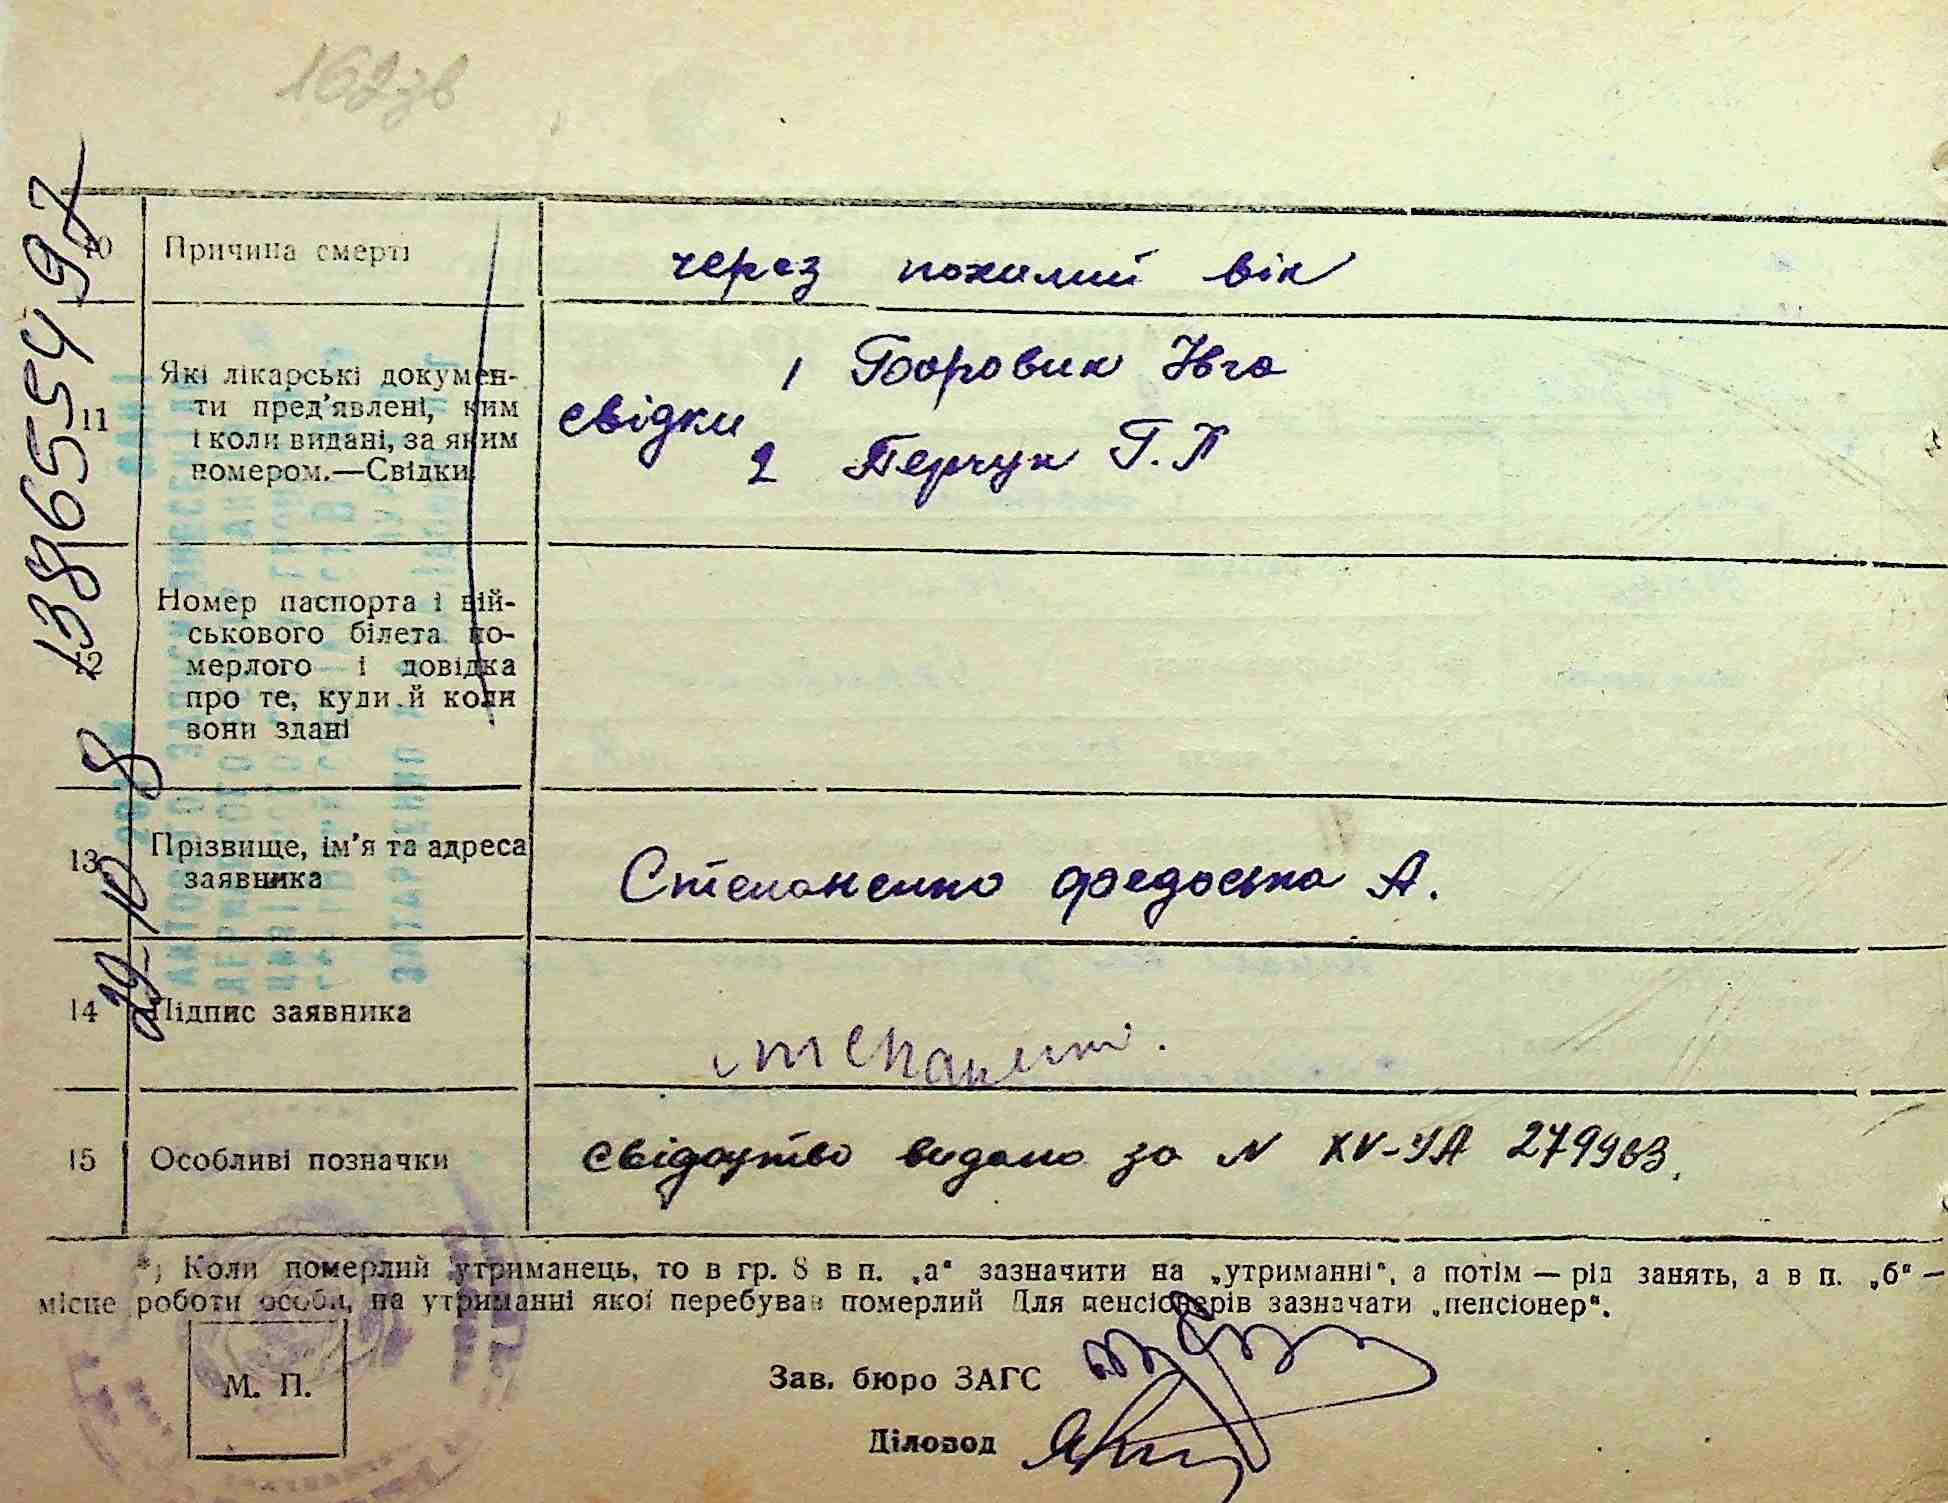 162зв
13865554 97
29-10 8
10 Причина смерті
через похилий вік
11 Які лікарські докумен-
ти пред'явлені, ким
і коли видані, за яким
номером.—Свідки
свідки
1 Боровик Ївга
2 Перчук Г. П
12 Номер паспорта і вій-
ськового білета по-
мерлого і довідка
про те, куди й коли
вони здані
13 Прізвище, ім'я та адреса
заявника
Степаненко Федоська А.
14 Підпис заявника
15 Особливі позначки
свідоцтво видано за N XV-УА 279963.
*) Коли померлий утриманець, то в гр. 8 в п. „а“ зазначити на „утриманні“, а потім — рід занять, а в п. „б“ —
місце роботи особи, на утриманні якої перебував померлий Для пенсіонерів зазначати „пенсіонер“.
М. П.
Зав. бюро ЗАГС
Діловод